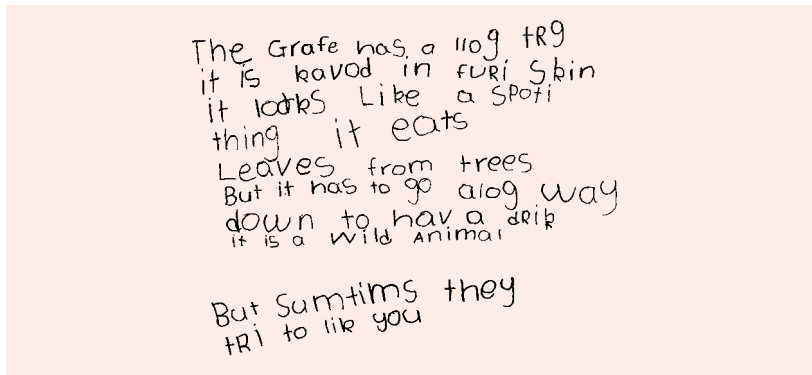 The Grafe has a llog tRg
it is kavod in fuRi Skin
it looks Like a Spoti
thing it eats
Leaves from trees
But it has to go alog way
down to hav a dRik
it is a wild Animal
But Sumtims they
tRi to lik you